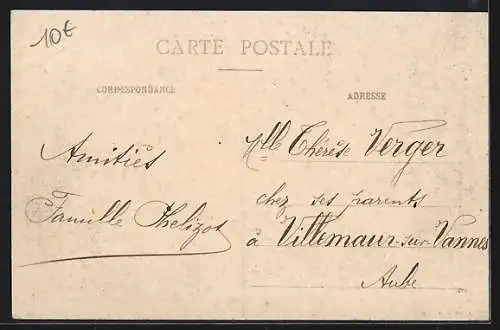 10€
CARTE POSTALE
CORRESPONDANCE
ADRESSE
Amitiés
Famille Phelizot
Mlle Thérèse Verger
chez ses parents
à Villemaur-sur-Vannes
Aube